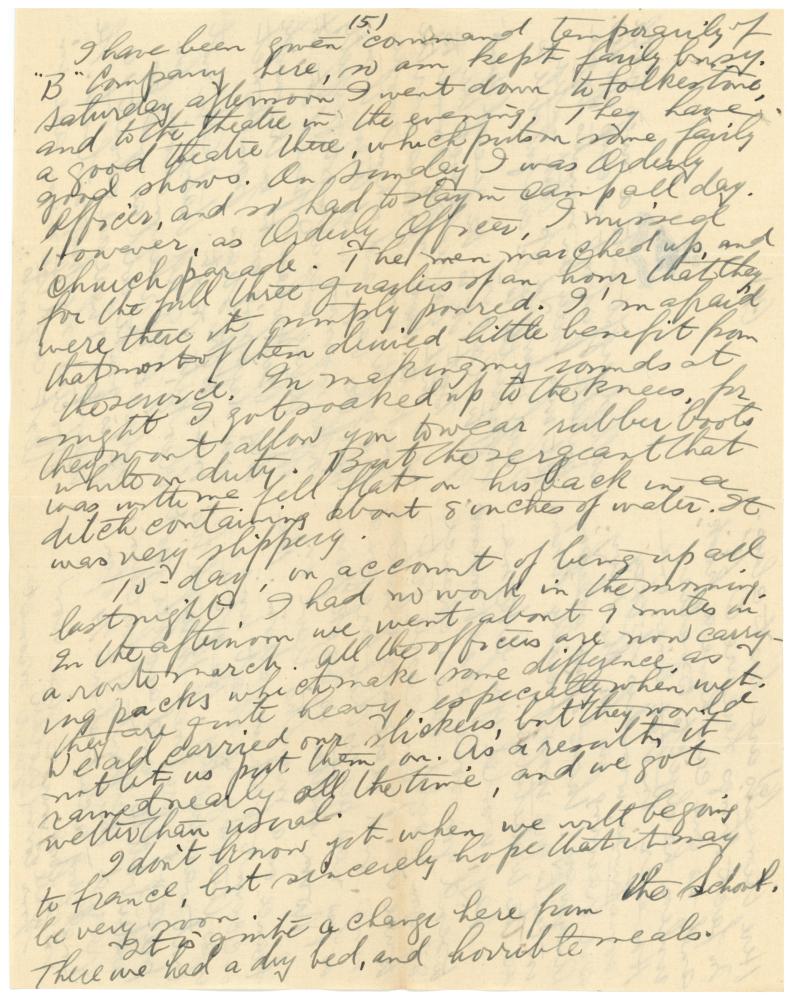 (5)
I have been given command temporarily of
"B" Company here, so am kept fairly busy.
Saturday afternoon I went down to Folkestone,
and to the theatre in the evening. They have
a good theatre there, which puts on some fairly
good shows. On Sunday I was Orderly
Officer, and so had to stay in camp all day.
However, as Orderly Officer, I missed
church parade. The men marched up, and
for the full three quarters of an hour that they
were there it simply poured. I'm afraid
that most of them derived little benefit from
the service. In making my rounds at
night I got soaked up to the knees, for
they won't allow you to wear rubber boots
while on duty. But the sergeant that
was with me fell flat on his back in a
ditch containing about 8 inches of water. It
was very slippery.
To-day, on account of being up all
last night I had no work in the morning.
In the afternoon we went about 9 miles in
a route march. All the officers are now carry-
ing packs which make some difference, as
they are quite heavy, especially when wet.
We all carried our slickers, but they would
not let us put them on. As a result, it
rained nearly all the time, and we got
wetter than usual.
I don't know yet when we will be going
to France, but sincerely hope that it may
be very soon.
It is quite a change here from the School.
There we had a dry bed, and horrible meals.